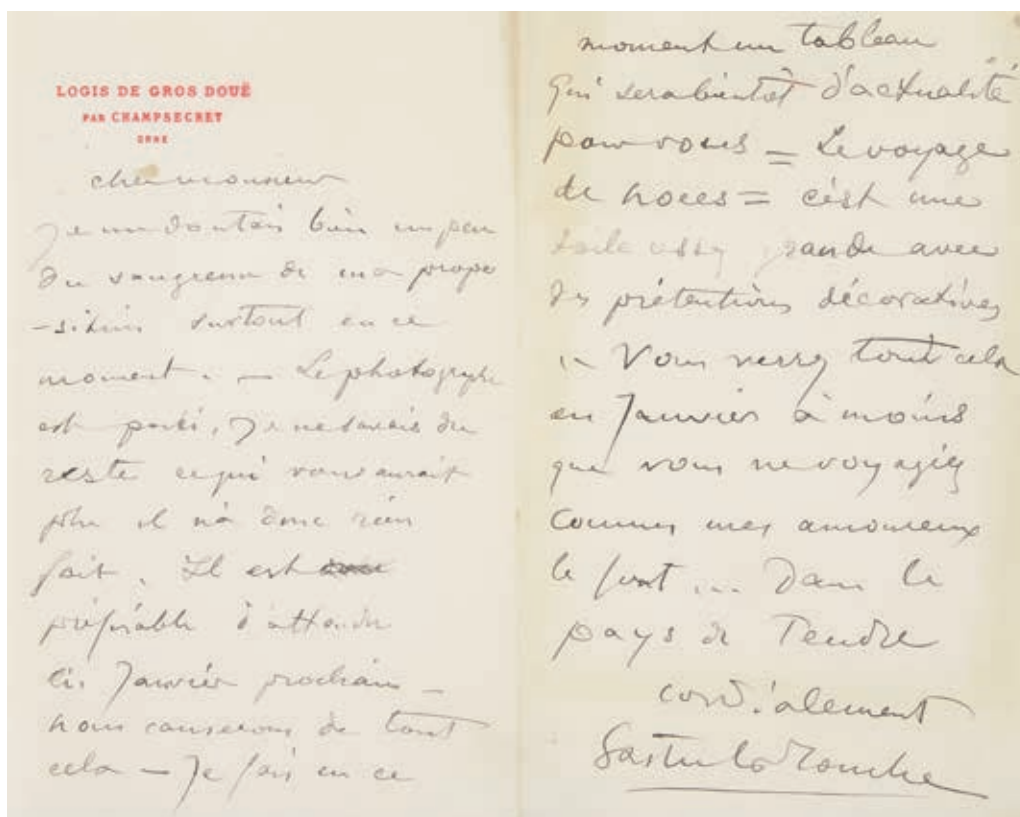 LOGIS DE GROS DOUÊ
PAR CHAMPSECRET
ORNE
cher monsieur
Je me doutais bien un peu
du saugrenu de ma propo
-sition surtout en ce
moment. — Le photographe
est parti, Je ne savais du
reste ce qui vous aurait
plu il n'a donc rien
fait. Il est
préférable d'attendre
Janvier prochain —
nous causerons de tout
cela — Je fais en ce
moment un tableau
qui sera bientôt d'actualité
pour vous = Le voyage
de noces = c'est une
toile assez grande avec
des prétentions décoratives
Vous verrez tout cela
en Janvier à moins
que vous ne voyagiez
comme mes amoureux
le font ... Dans le
pays de Tendre
cordialement
Gaston La Touche